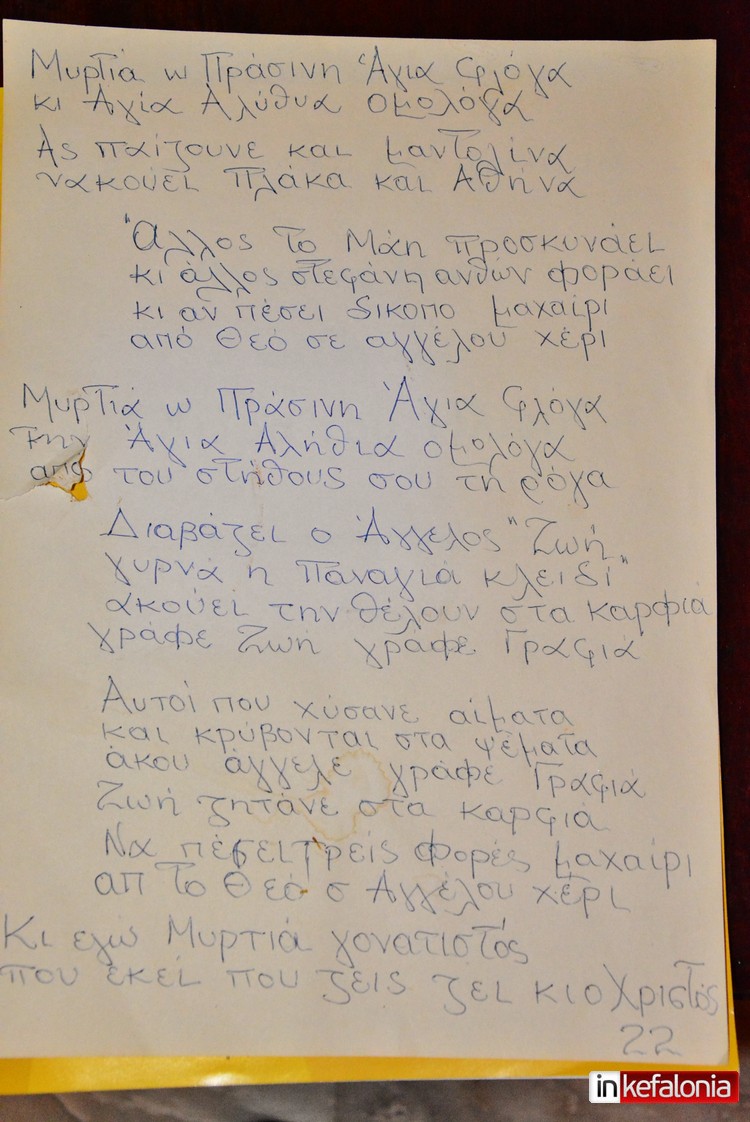 Μυρτιά ω Πράσινη Άγια Φλόγα
κι Αγία Αλύθυα ομολόγα
Ας παίζουνε και μαντολίνα
νακούει Πλάκα και Αθήνα
"Άλλος το Μάη προσκυνάει
κι άλλος στεφάνη ανθών φοράει
κι αν πέσει δίκοπο μαχαίρι
από Θεό σε αγγέλου χέρι
Μυρτιά ω Πράσινη Άγια Φλόγα
την Άγια Αλήθια ομολόγα
από του στήθους σου τη ρόγα
Διαβάζει ο Άγγελος "Ζωή
γυρνά η Παναγιά κλειδί"
ακούει την θέλουν στα καρφιά
γράφε Ζωή γράφε Γραφιά
Αυτοί που χύσανε αίματα
και κρύβονται στα ψέματα
άκου άγγελε γράφε Γραφιά
Ζωή ζητάνε στα καρφιά
Να πέσει τρείς φορές μαχαίρι
απ το Θεό σ Αγγέλου χέρι
Κι εγώ Μυρτιά γονατιστός
που εκεί που ζεις ζει κι ο Χριστός
22
inkefalonia